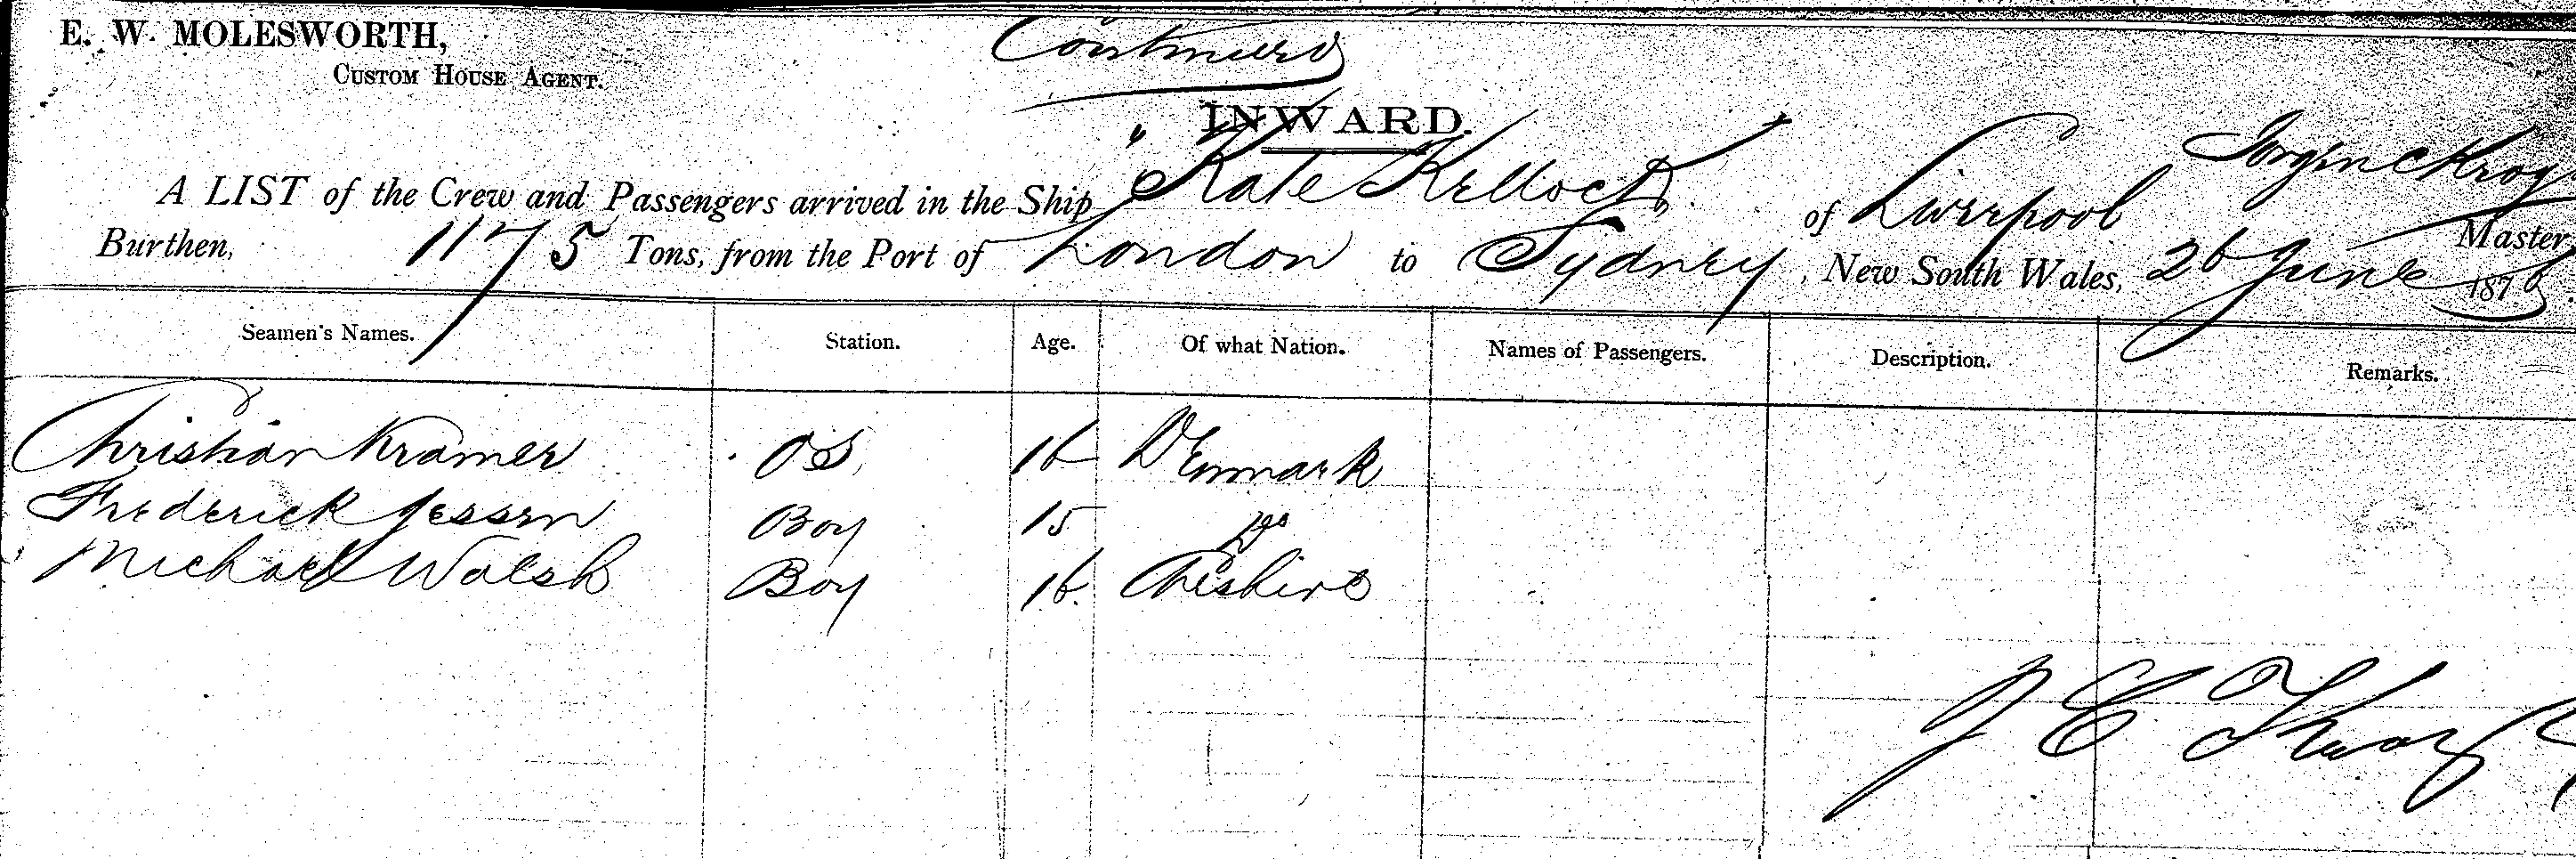 E. W. MOLESWORTH,
CUSTOM HOUSE AGENT.
Continued
INWARD.
A LIST of the Crew and Passengers arrived in the Ship "Kate Kellock" of Liverpool
Master
Burthen, 1175 Tons, from the Port of London to Sydney, New South Wales, 26 June 187
Seamen's Names. Station. Age. Of what Nation. Names of Passengers. Description. Remarks.
Christian Kramer OS 16 Denmark
Frederick Jessen Boy 15 Do
Michael Walsh Boy 16 Cheshire